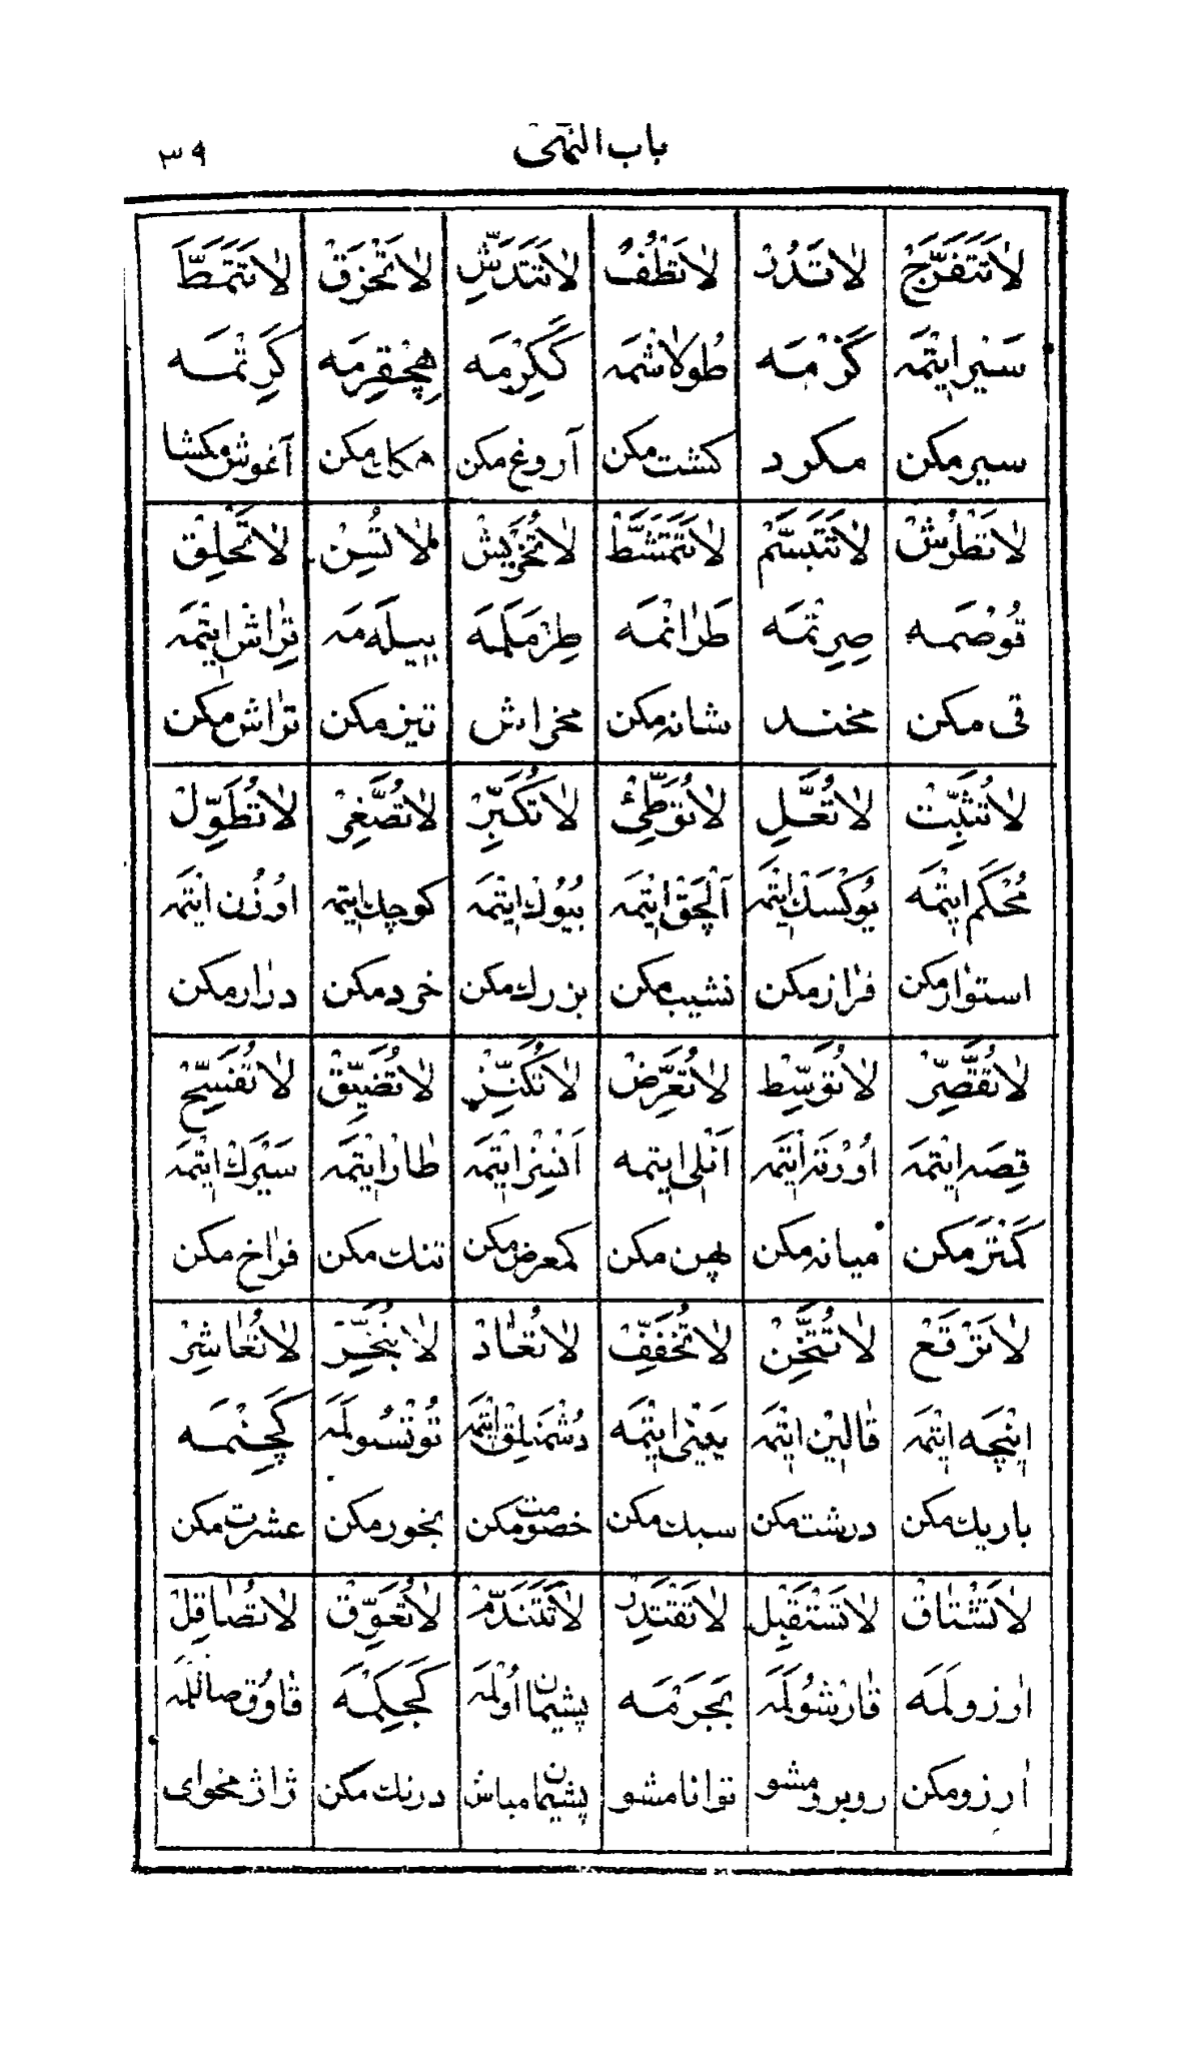 باب النهى ٣٩
لاتتفرج لاتدر لاتطف لاتتدش لاتحزق لاتتمط
سير ايتمه كزمه طولاشمه ككرمه هچقرمه كرتمه
سير مكن مكرد كشت مكن آروغ مكن هكك مكن آغوش مكشا
لاتطرش لاتتبسم لاتتمشط لاتخربش لاتسن لاتحلق
قوصمه صرتمه طرانمه طرمله‌مه بيله‌مه تراش ايتمه
قى مكن مخند شانه مكن مخراش تيز مكن تراش مكن
لاتثبت لاتعل لاتوطئ لاتكبر لاتصغر لاتطول
محكم ايتمه يوكسك ايتمه آلچق ايتمه بيوك ايتمه كوچك ايتمه اوزن ايتمه
استوار مكن فراز مكن نشيب مكن بزرك مكن خرد مكن دراز مكن
لاتقصر لاتوسط لاتعرض لاتكنز لاتضيق لاتفسح
قصه ايتمه اورته ايتمه انلى ايتمه انسز ايتمه طار ايتمه سيرك ايتمه
كمتر مكن ميانه مكن پهن مكن كمعرض مكن تنك مكن فراخ مكن
لاترقع لاتثخن لاتخفف لاتعاد لاتبخر لاتعاشر
اينچه ايتمه قالين ايتمه يينى ايتمه دشمنلق ايتمه توتسوله‌مه كچنمه
باريك مكن درشت مكن سبك مكن خصومت مكن بخور مكن عشرت مكن
لاتشتاق لاتستقبل لاتقتدر لاتتندم لاتعوق لاتصاقل
ارزولمه قارشولمه بجرمه پشيمان اولمه كجكمه قاوق صاتلمه
ارزو مكن روبرو مشو توانا مشو پشيمان مباش درنك مكن ژاژ مخواى